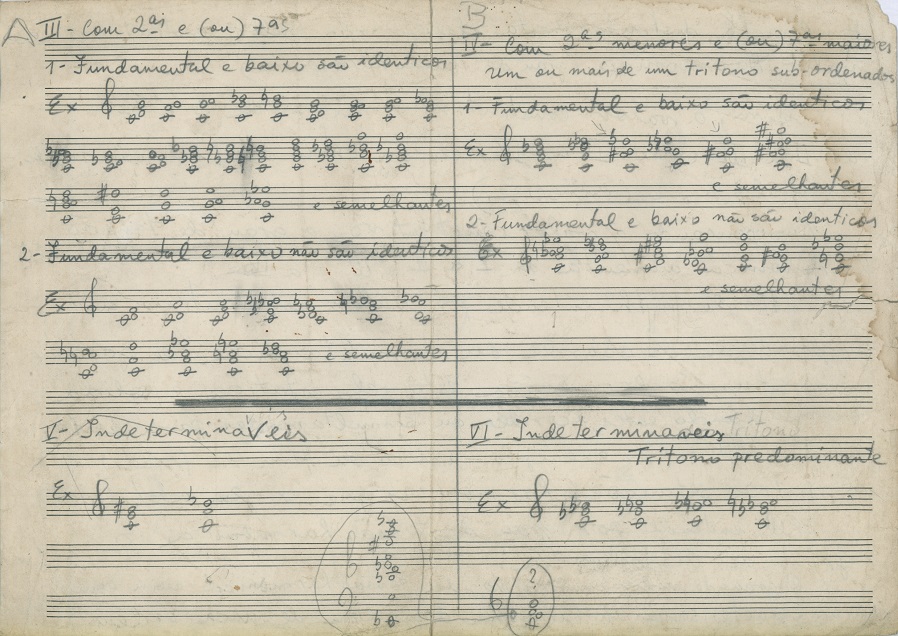 A
III - Com 2as e (ou) 7as
1- Fundamental e baixo são identicos
Ex
e semelhantes
2- Fundamental e baixo não são identicos
Ex
e semelhantes
V- Indetermináveis
Ex
B
IV - Com 2as menores e (ou) 7as maiores
Um ou mais de um tritono sub-ordenados
1- Fundamental e baixo são identicos
Ex
e semelhantes
2- Fundamental e baixo não são identicos
Ex
e semelhantes
VI - Indeterminaveis Tritono
Tritono predominante
Ex
?